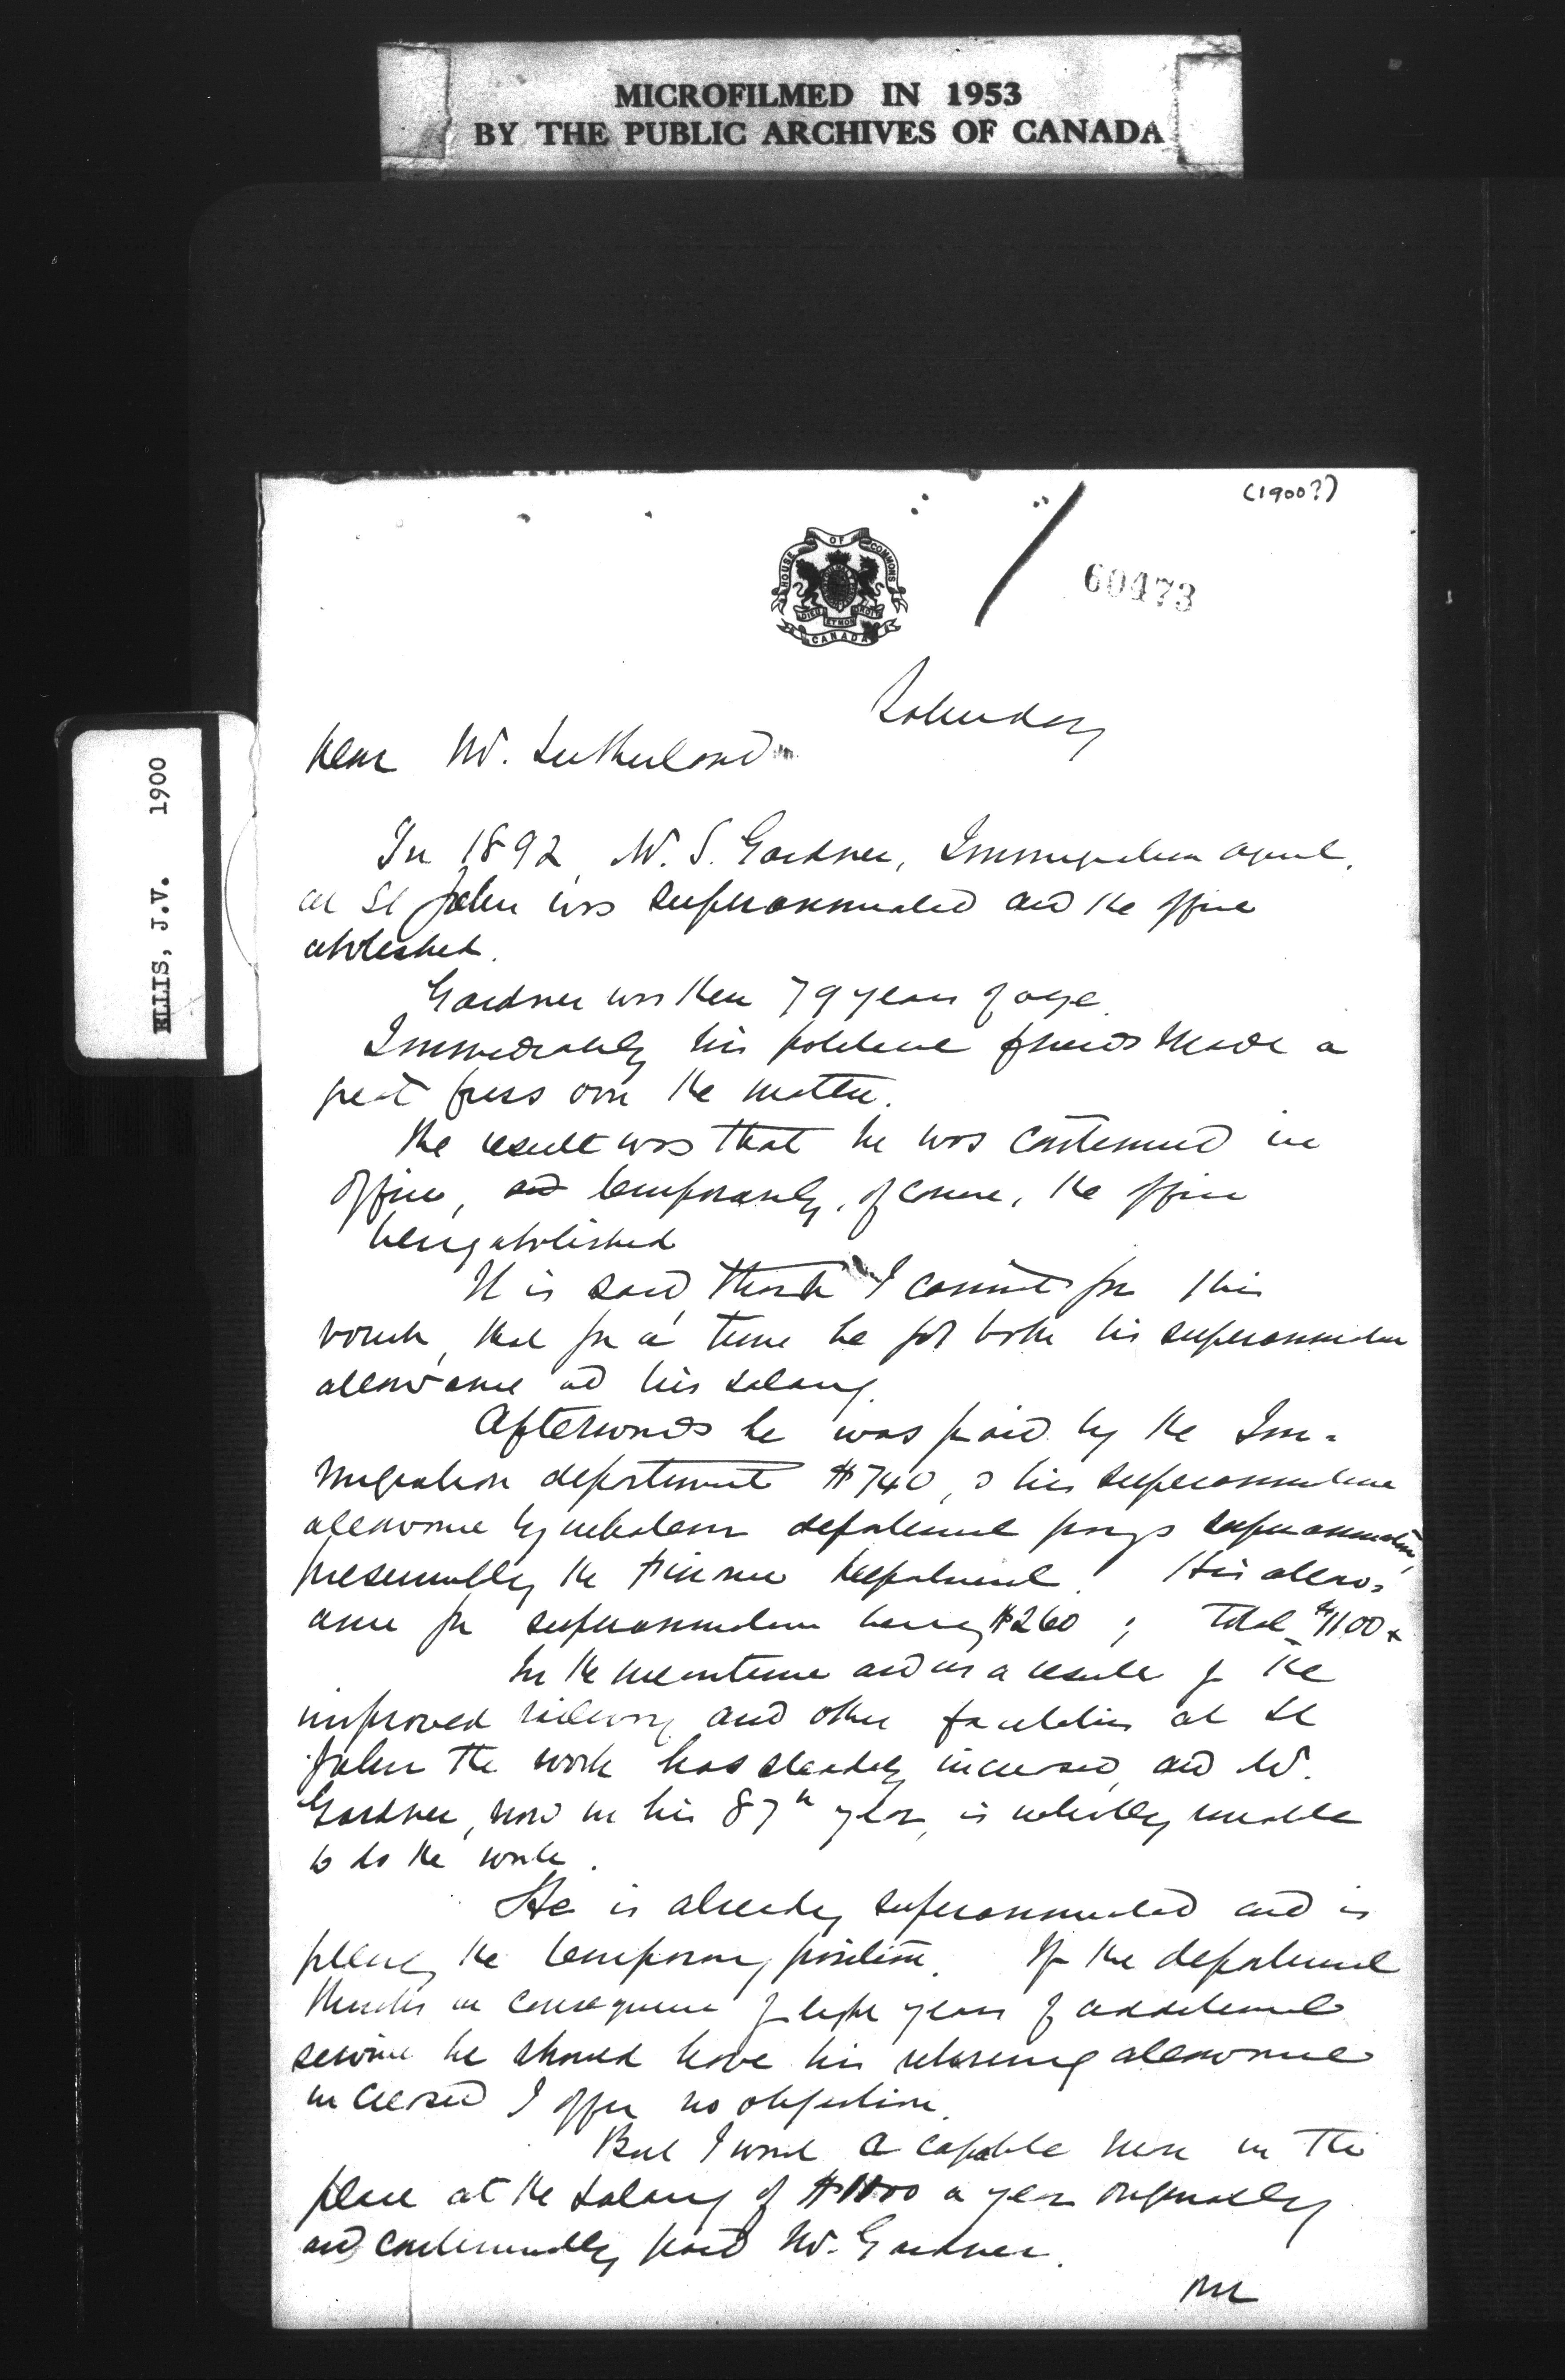 MICROFILMED IN 1953
BY THE PUBLIC ARCHIVES OF CANADA
ELLIS, J.V. 1900
(1900?)
HOUSE OF COMMONS
DIEU ET MON DROIT
CANADA
60473
Saturday
Dear Mr. Sutherland
In 1892, Mr. S. Gardner, Immigration agent,
at St John was superannuated and the office
abolished.
Gardner was then 79 years of age.
Immediately his political friends made a
great fuss over the matter.
The result was that he was continued in
office, and temporarily, of course, the office
being abolished
It is said, though I cannot for this
vouch, that for a time he got both his superannuation
allowance and his salary.
Afterwards he was paid by the Im-
migration department $740, & his superannuation
allowance by whatever department pays superannuation,
presumably the Finance Department. His allow-
ance for superannuation being $260; Total $1100
In the meantime and as a result of the
improved railway and other facilities at St
John the work has steadily increased, and Mr.
Gardner, now in his 87th year, is wholly unable
to do the work.
He is already superannuated and is
the temporary position. If the department
thinks in consequence of eight years of additional
service he should have his retiring allowance
increased I offer no objection.
But I want a capable man in the
place at the salary of $1100 a year originally
and continually paid Mr. Gardner.